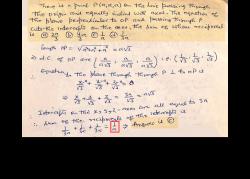 There is a point P(a,a,a) on the line passing through
the origin and equally inclined with axes. The equation of
the plane perpendicular to OP and passing through P
cuts the intercepts on the axes. The sum of whose reciprocals
is
Length OP = √a²+a²+a² = a√3
D.C. of OP are (a/a√3, a/a√3, a/a√3) i.e. (1/√3, 1/√3, 1/√3)
Equation to the plane through P ⊥ to OP is
x/√3 + y/√3 + z/√3 = 3a/√3 = a√3
Intercepts on the x, y, z-axes are all equal to 3a
∴ Sum of the reciprocals of the intercepts is
1/3a + 1/3a + 1/3a = 1/a ⇒ Answer is